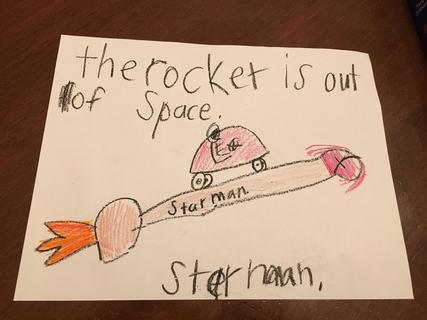 the rocket is out
of space.
Starman
Starman.